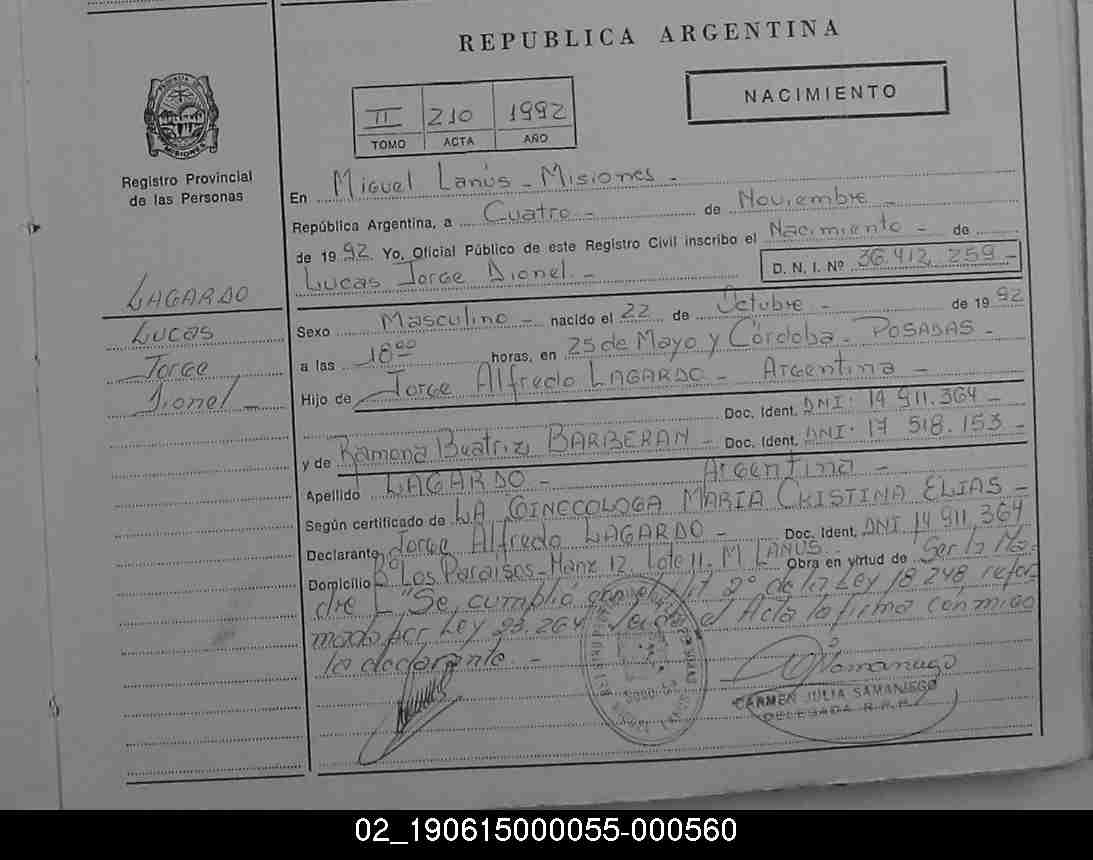 REPUBLICA ARGENTINA
PROVINCIA DE MISIONES
Registro Provincial
de las Personas
II 210 1992
TOMO ACTA AÑO
NACIMIENTO
LAGARDO
Lucas
Jorge
Dionel -
En Miguel Lanús - Misiones -
República Argentina, a Cuatro - de Noviembre -
de 19 92. Yo, Oficial Público de este Registro Civil inscribo el Nacimiento - de
Lucas Jorge Dionel. - D. N. I. Nº 36.412.259 -
Sexo Masculino - nacido el 22 de Octubre - de 19 92
a las 18 00 horas, en 25 de Mayo y Córdoba - POSADAS -
Hijo de Jorge Alfredo LAGARDO - Argentina -
Doc. Ident. DNI: 14 911.364 -
y de Ramona Beatriz BARBERAN - Doc. Ident. DNI: 17 518.153 -
Argentina -
Apellido LAGARDO -
Según certificado de LA GINECOLOGA MARIA CRISTINA ELIAS -
Declarante Jorge Alfredo LAGARDO - Doc. Ident. DNI 14 911.364
Domicilio Bº Los Paraisos - Manz 12. Lote 11. M LANUS. Obra en virtud de Ser la Ma-
dre "Se cumplió con el Art 2º de la Ley 18.248, refor-
mado por Ley 23.264 el Acta la firma conmigo
la declarante. -
CARMEN JULIA SAMANIEGO
DELEGADA R.P.P.
02_190615000055-000560